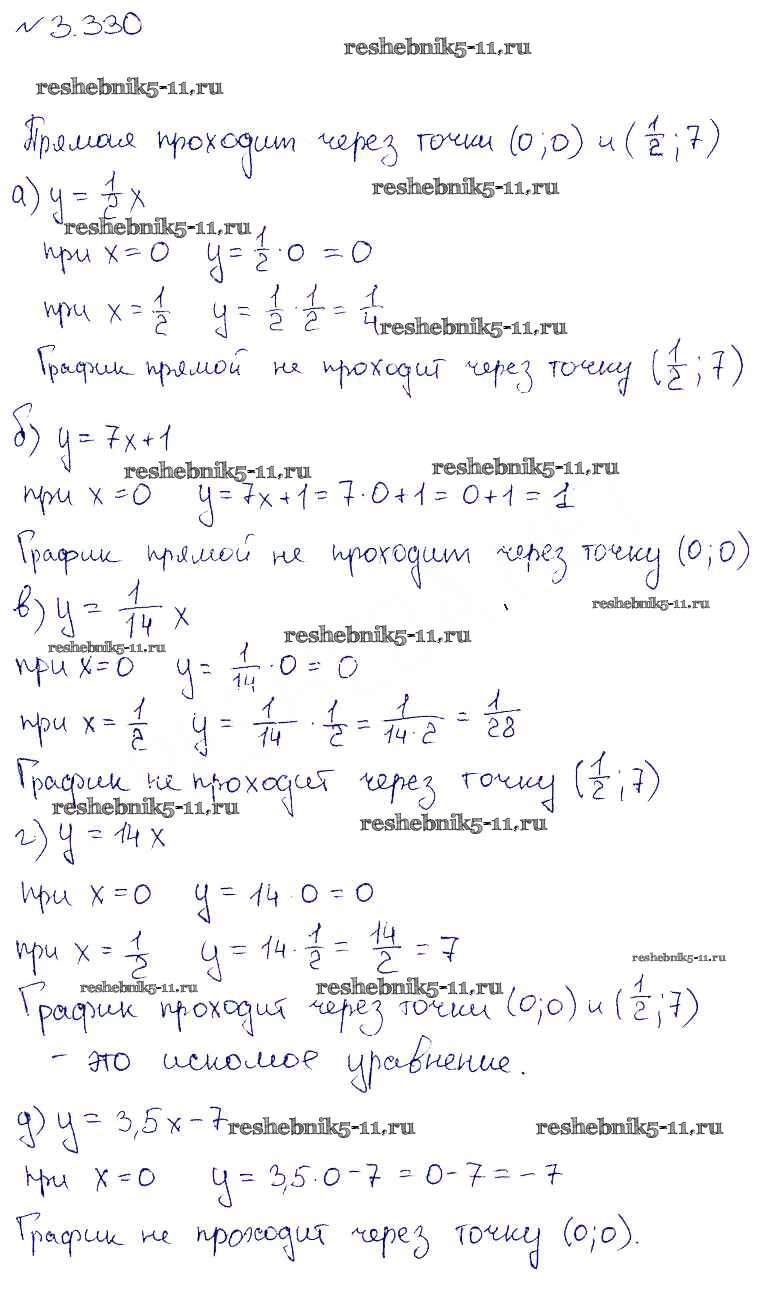 № 3.330
reshebnik5-11.ru
reshebnik5-11.ru
Прямая проходит через точки (0;0) и (1/2;7)
reshebnik5-11.ru
а) y = 1/2 x
reshebnik5-11.ru
при x=0 y = 1/2 · 0 = 0
при x = 1/2 y = 1/2 · 1/2 = 1/4
reshebnik5-11.ru
График прямой не проходит через точку (1/2;7)
б) y = 7x+1
reshebnik5-11.ru reshebnik5-11.ru
при x=0 y=7x+1=7·0+1=0+1=1
График прямой не проходит через точку (0;0)
в) y = 1/14 x
reshebnik5-11.ru
reshebnik5-11.ru
reshebnik5-11.ru
при x=0 y = 1/14 · 0 = 0
при x = 1/2 y = 1/14 · 1/2 = 1/14·2 = 1/28
График не проходит через точку (1/2;7)
reshebnik5-11.ru
reshebnik5-11.ru
г) y = 14x
при x=0 y = 14 · 0 = 0
при x = 1/2 y = 14 · 1/2 = 14/2 = 7
reshebnik5-11.ru
reshebnik5-11.ru reshebnik5-11.ru
График проходит через точки (0;0) и (1/2;7)
- это искомое уравнение.
д) y = 3,5x-7
reshebnik5-11.ru reshebnik5-11.ru
при x=0 y = 3,5·0-7 = 0-7 = -7
График не проходит через точку (0;0).